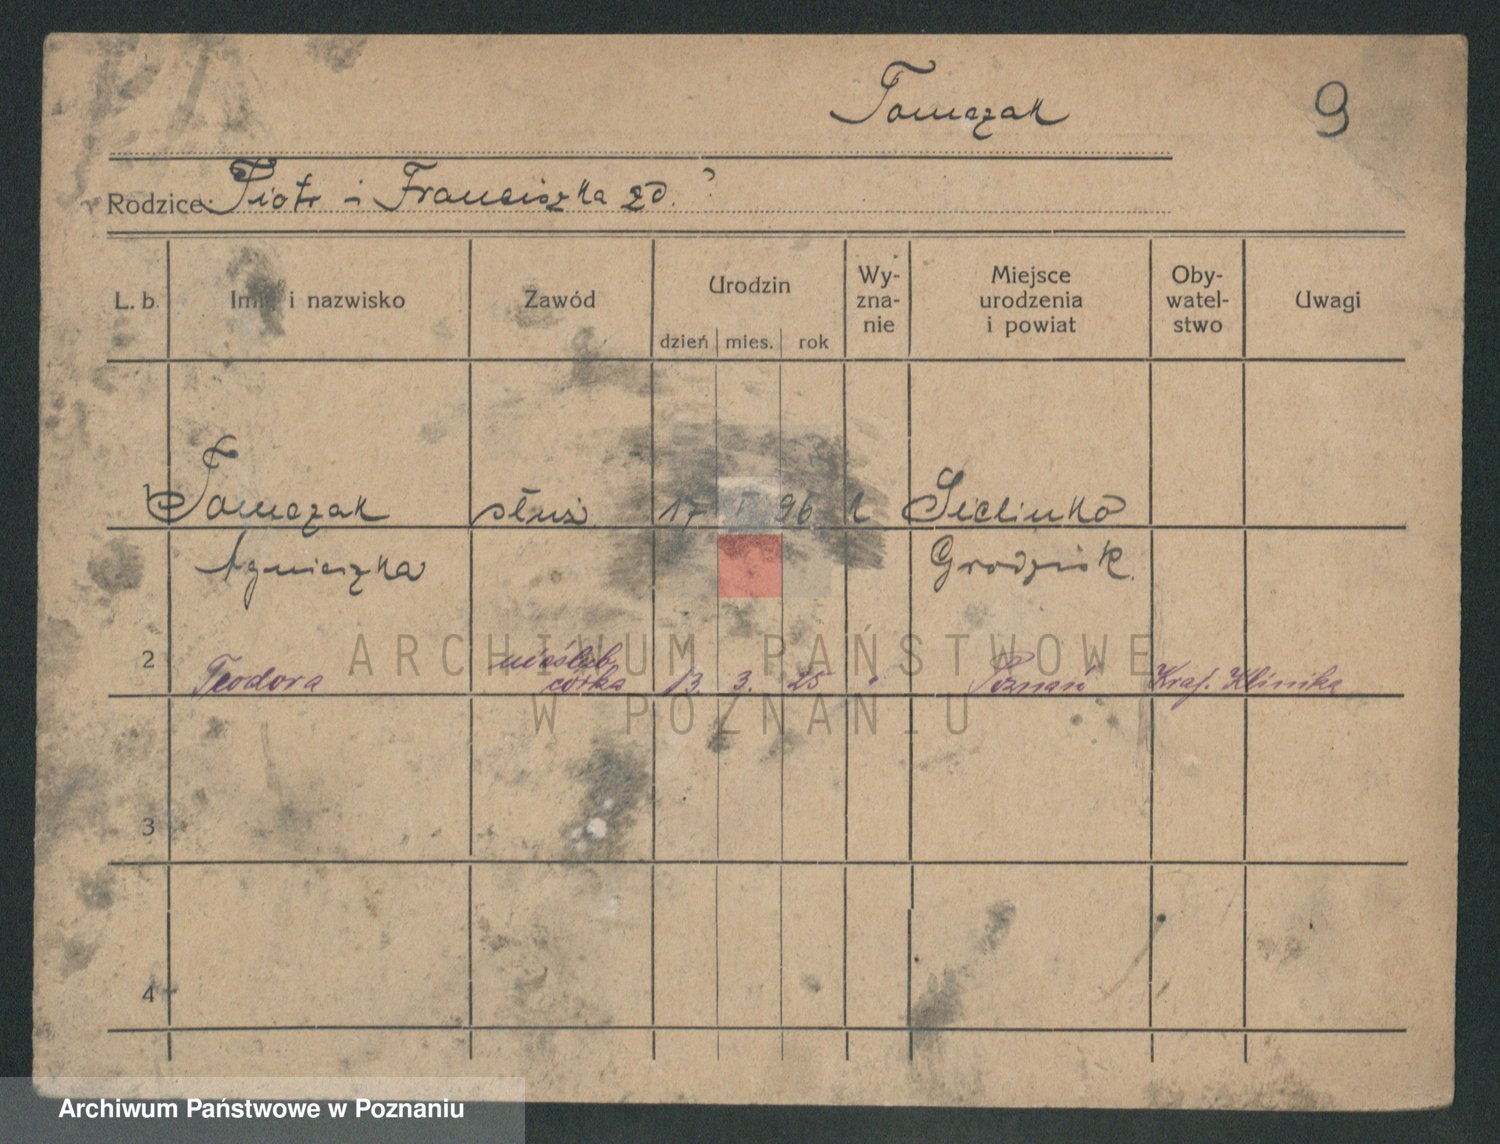 Tomczak
9
Rodzice: Piotr i Franciszka zd. ?
L. b. Imię i nazwisko Zawód Urodzin Wy-zna-nie Miejsce urodzenia i powiat Oby-watel-stwo Uwagi
dzień mies. rok
1 Tomczak służ. 17 96 k Sielinko
Agnieszka Grodzisk.
2 Teodora nieślub. córka 13. 3. 25 " Poznań Kraj. Klinika
3
4
ARCHIWUM PAŃSTWOWE
W POZNANIU
Archiwum Państwowe w Poznaniu